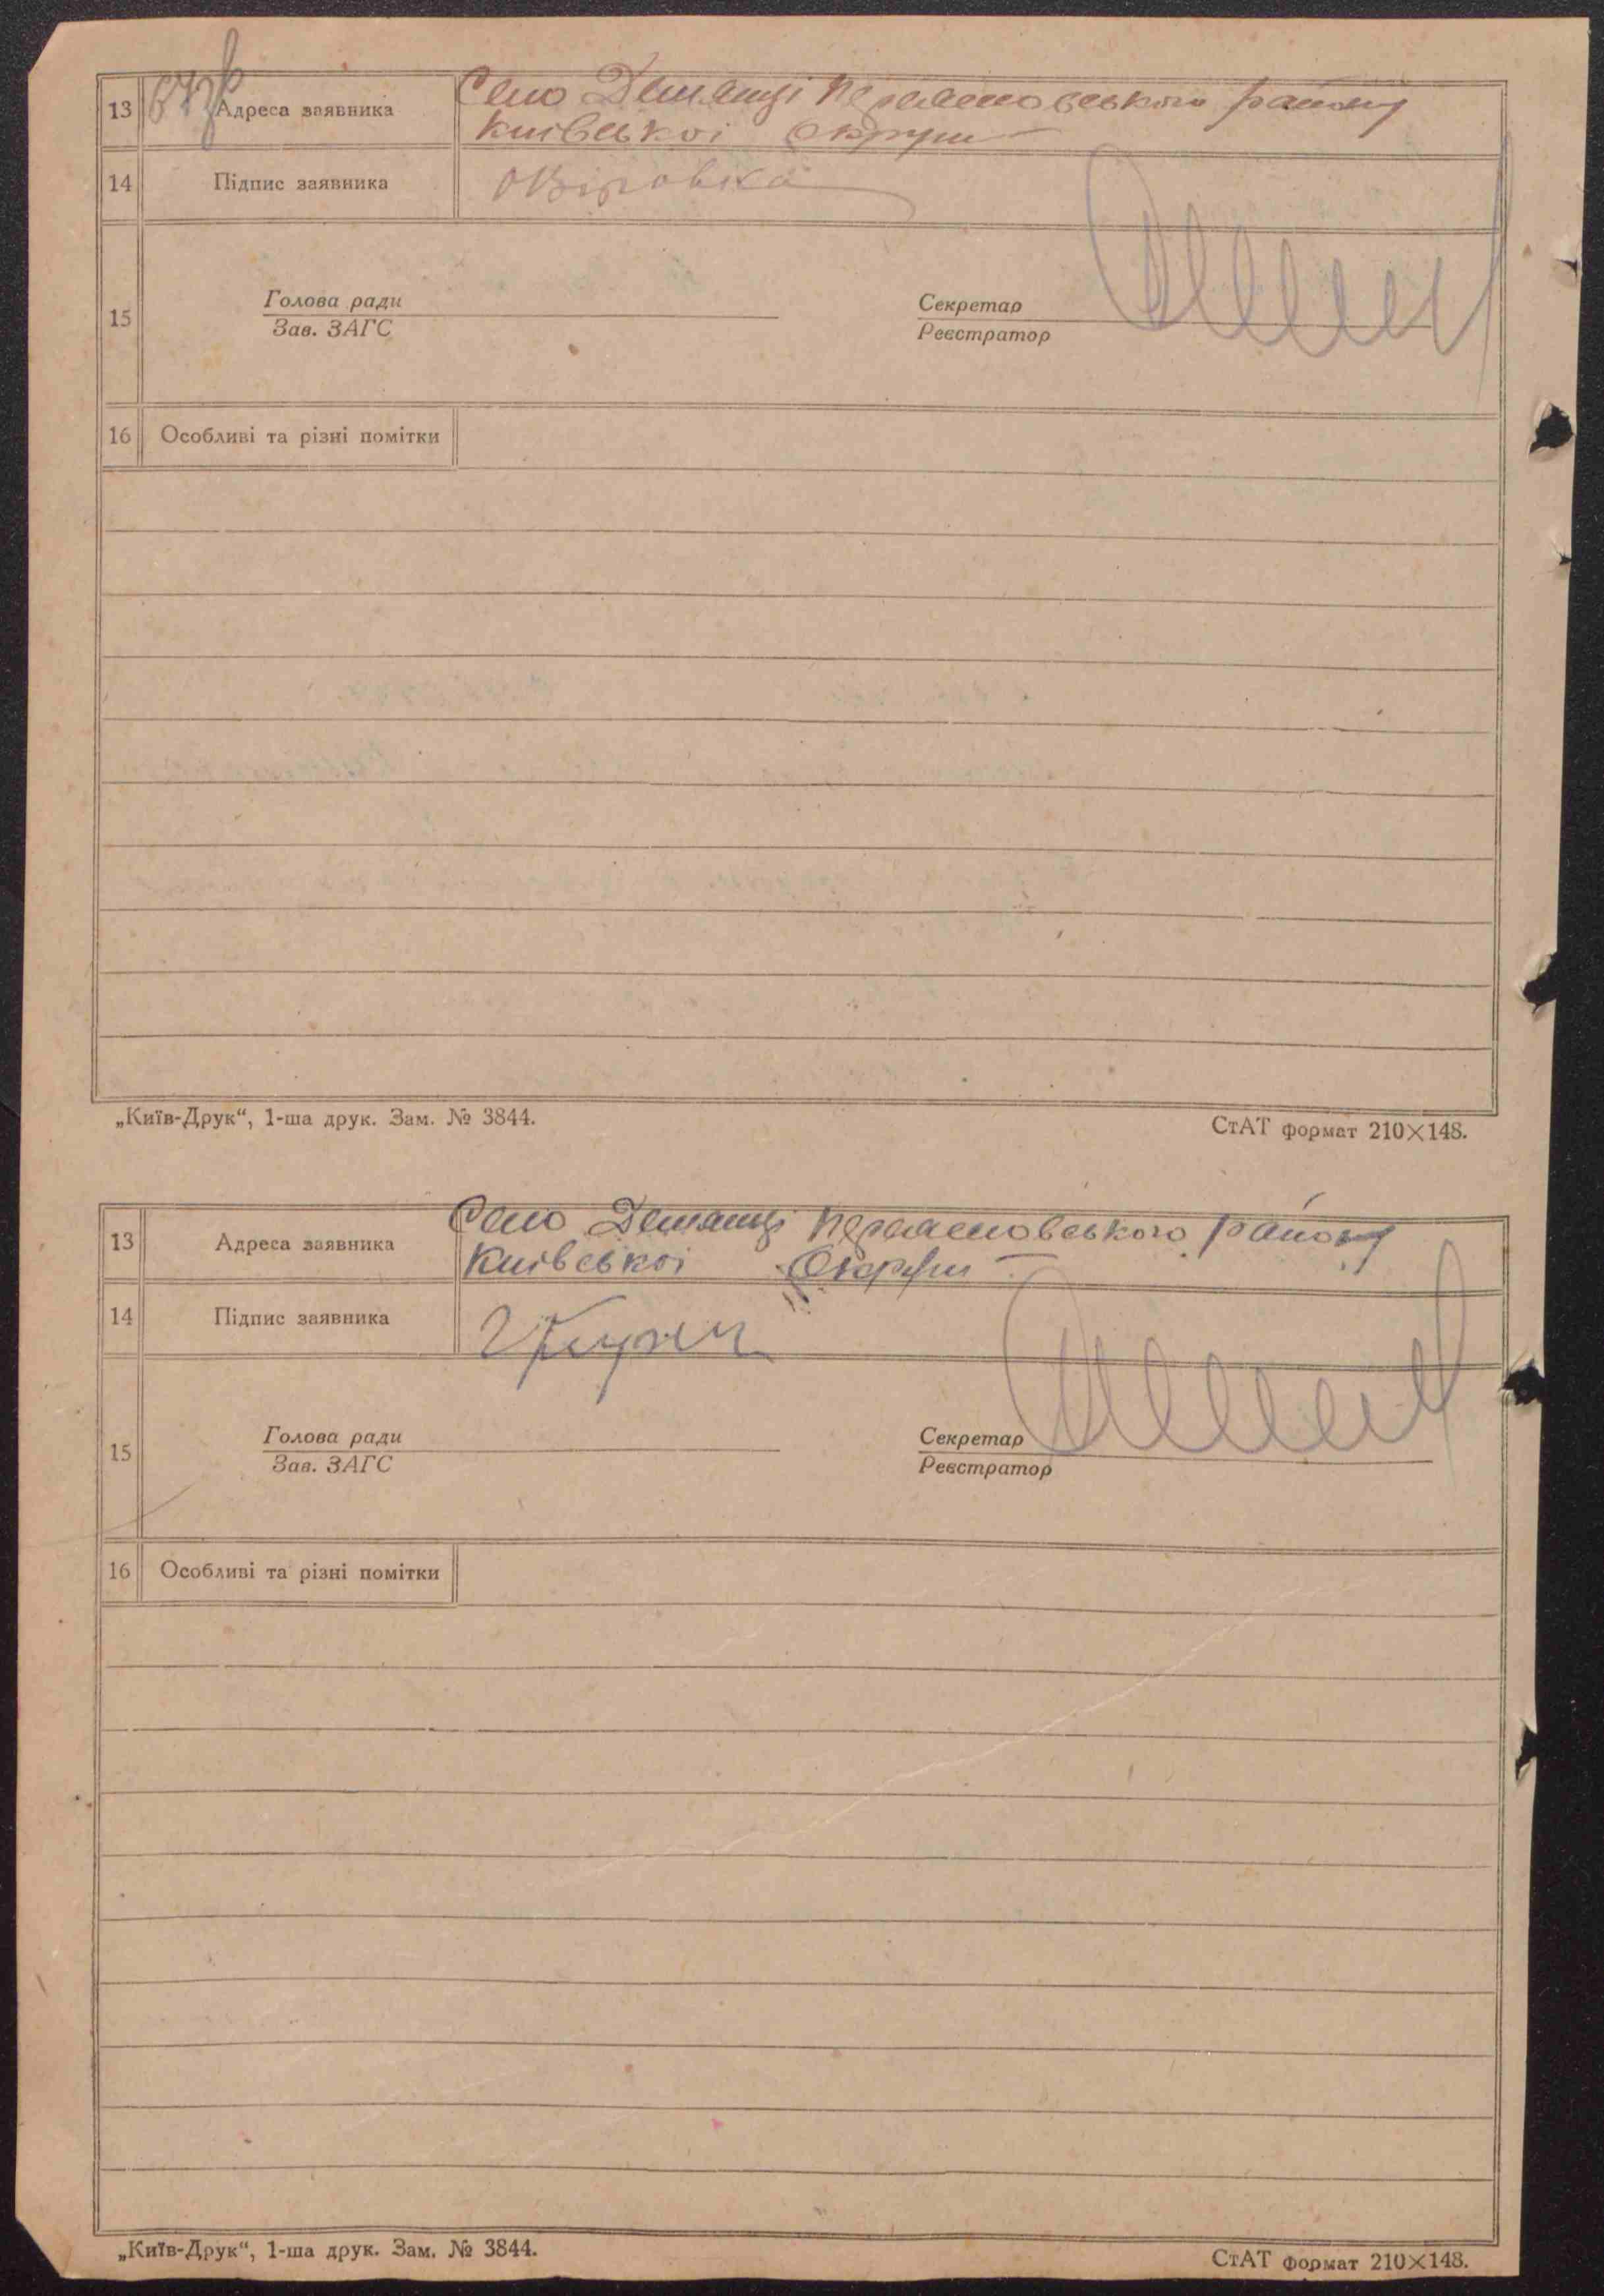 13 Адреса заявника Село Демянці Переяславського району
Київської Округи
14 Підпис заявника
15 Голова ради Секретар
Зав. ЗАГС Реєстратор
16 Особливі та різні помітки
„Київ-Друк“, 1-ша друк. Зам. № 3844. СтАТ формат 210×148.
13 Адреса заявника Село Демянці Переяславського району
Київської Округи
14 Підпис заявника
15 Голова ради Секретар
Зав. ЗАГС Реєстратор
16 Особливі та різні помітки
„Київ-Друк“, 1-ша друк. Зам. № 3844. СтАТ формат 210×148.